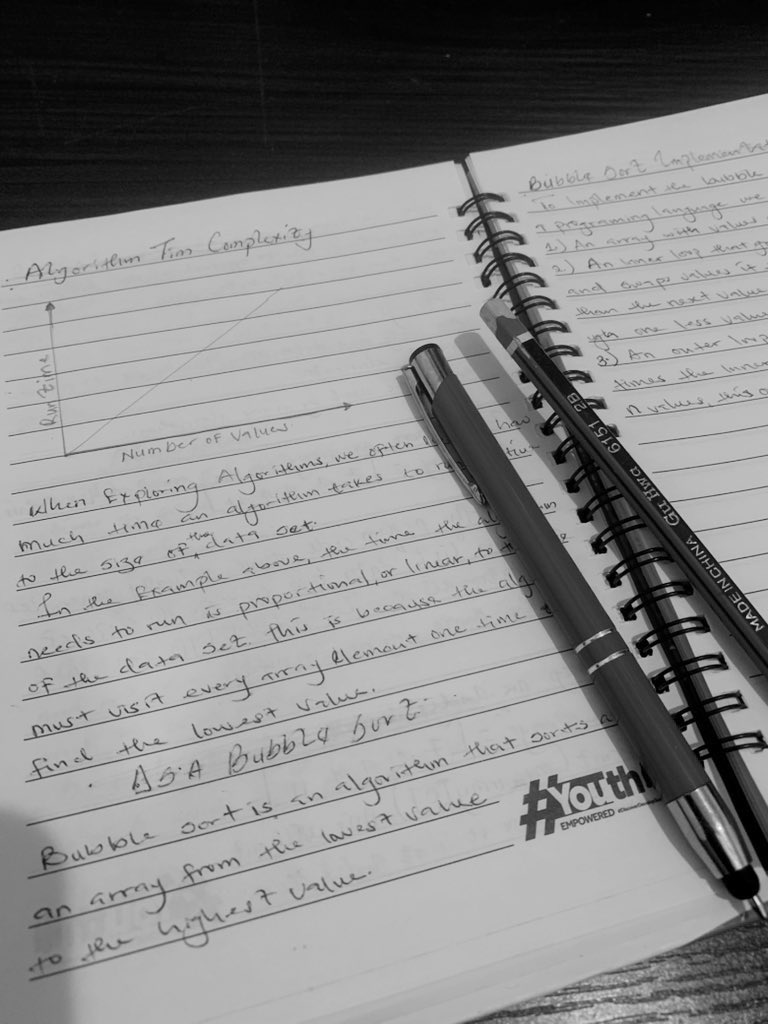 Algorithm Tim Complexity
Run time
Number of values
When Exploring Algorithms, we often
much time an algorithm takes to
to the size of the data set.
In the Example above, the time the
needs to run is proportional, or linear, to
of the data set. This is because the
must visit every array Element one time
find the lowest value.
DSA Bubble Sort.
Bubble sort is an algorithm that sorts
an array from the lowest value
to the highest value.
#Youth
EMPOWERED
Bubble Sort
To Implement the bubble
a programing language we
1.) An array with values
2.) An inner loop that
and swaps values if
than the next value
one less value
3.) An outer loop
times the inner
n values, this
6151 2B
MADE IN CHINA GUHWA 6151